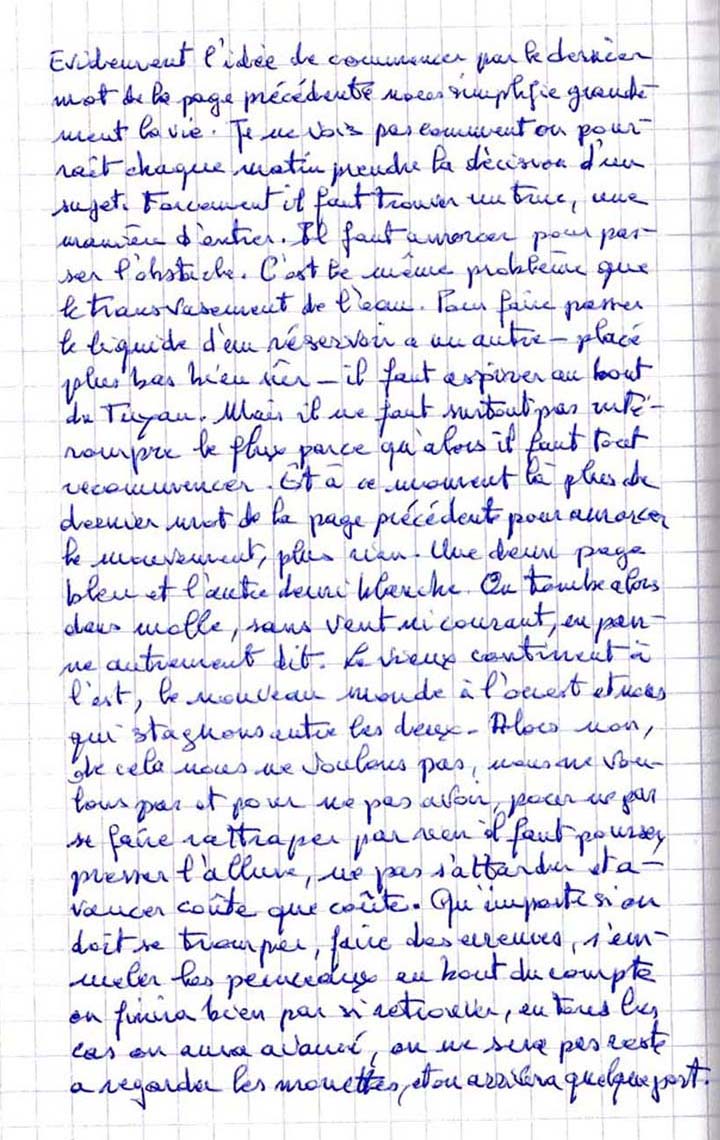 Evidemment l'idée de commencer par le dernier
mot de la page précédente nous simplifie grande-
ment la vie. Je ne vois pas comment on pour-
rait chaque matin prendre la décision d'un
sujet. Forcement il faut trouver un truc, une
manière d'entrer. Il faut amorcer pour pas-
ser l'obstacle. C'est le même problème que
le transvasement de l'eau. Pour faire passer
le liquide d'un réservoir a un autre - placé
plus bas bien sûr - il faut aspirer au bout
du Tuyau. Mais il ne faut surtout pas inté-
rompre le flux parce qu'alors il faut tout
recommencer. Et à ce moment là plus de
dernier mot de la page précédente pour amorcer
le mouvement, plus rien. Une demi page
bleu et l'autre demi blanche. On tombe alors
dans molle, sans vent ni courant, en pan-
ne autrement dit. Le vieux continent à
l'est, le nouveau monde à l'ouest et nous
qui stagnons entre les deux. Alors non,
de cela nous ne voulons pas, nous ne vou-
lons pas et pour ne pas avoir, pour ne pas
se faire rattraper par rien il faut pousser,
presser l'allure, ne pas s'attarder et a-
vancer coûte que coûte. Qu'importe si on
doit se tromper, faire des erreurs, s'em-
meler les pinceaux au bout du compte
on finira bien par si retrouver, en tous les
cas on aura avancé, on ne sera pas resté
a regarder les mouettes, et on arrivera quelque part.